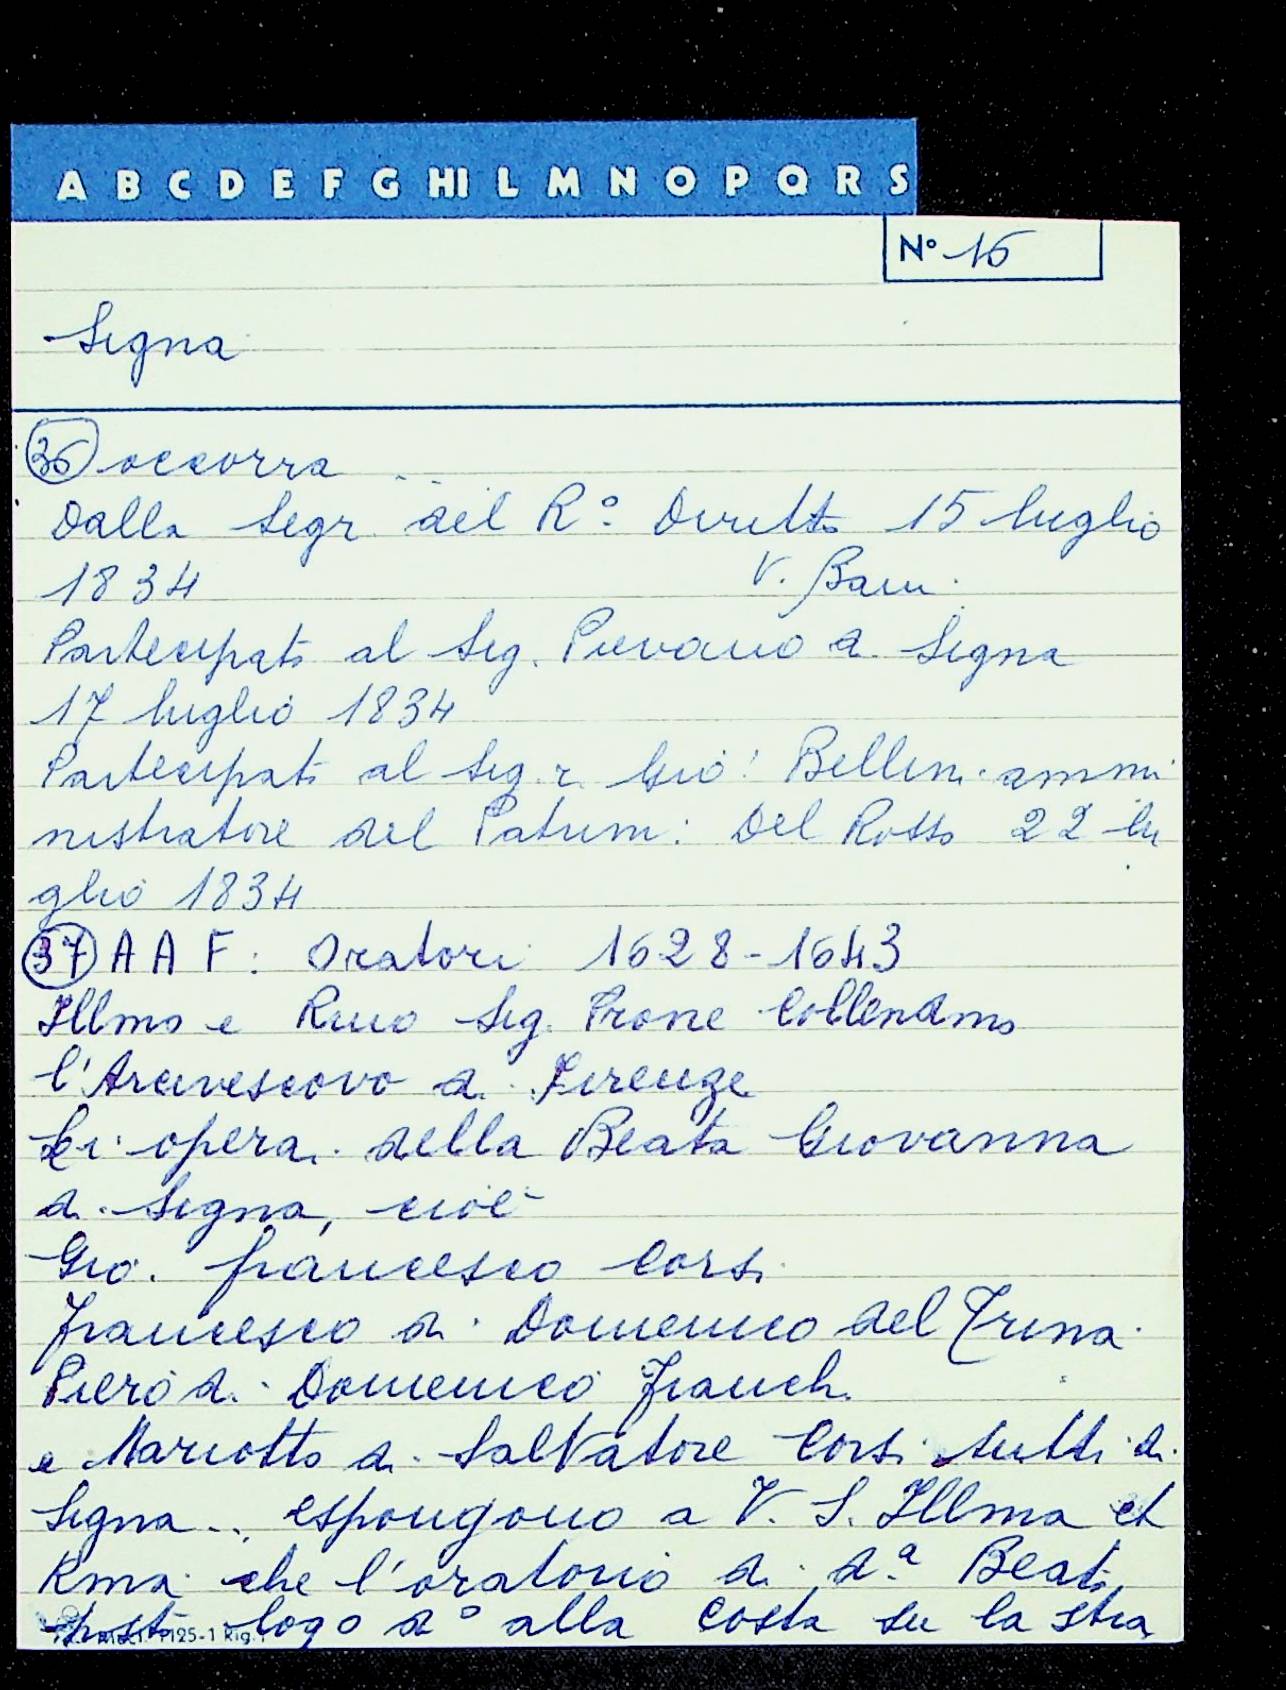 A B C D E F G HI L M N O P Q R S
N° 16
Segna
36 occorra ...
Dalla Segr. del R° Diritto 15 luglio
1834 V. Bani
Partecipato al Sig. Pievano di Segna
17 luglio 1834
Partecipato al Sig.r Gio: Bellini ammi
nistratore del Patrim: Del Rosso 22 lu
glio 1834
37 A A F: Oratori 1628-1643
Illmo e Rmo Sig. Prone Collendmo
l'Arcivescovo di Firenze
Li operai della Beata Giovanna
di Signa, cioè
Gio. francesco Corsi
francesco di Domenico del Trina
Piero di Domenico franchi
e Mariotto di Salvatore Corsi tutti di
Signa... espongono a V. S. Illma et
Rma che l'oratorio di d.a Beata
posto logo d° alla Costa su la stra